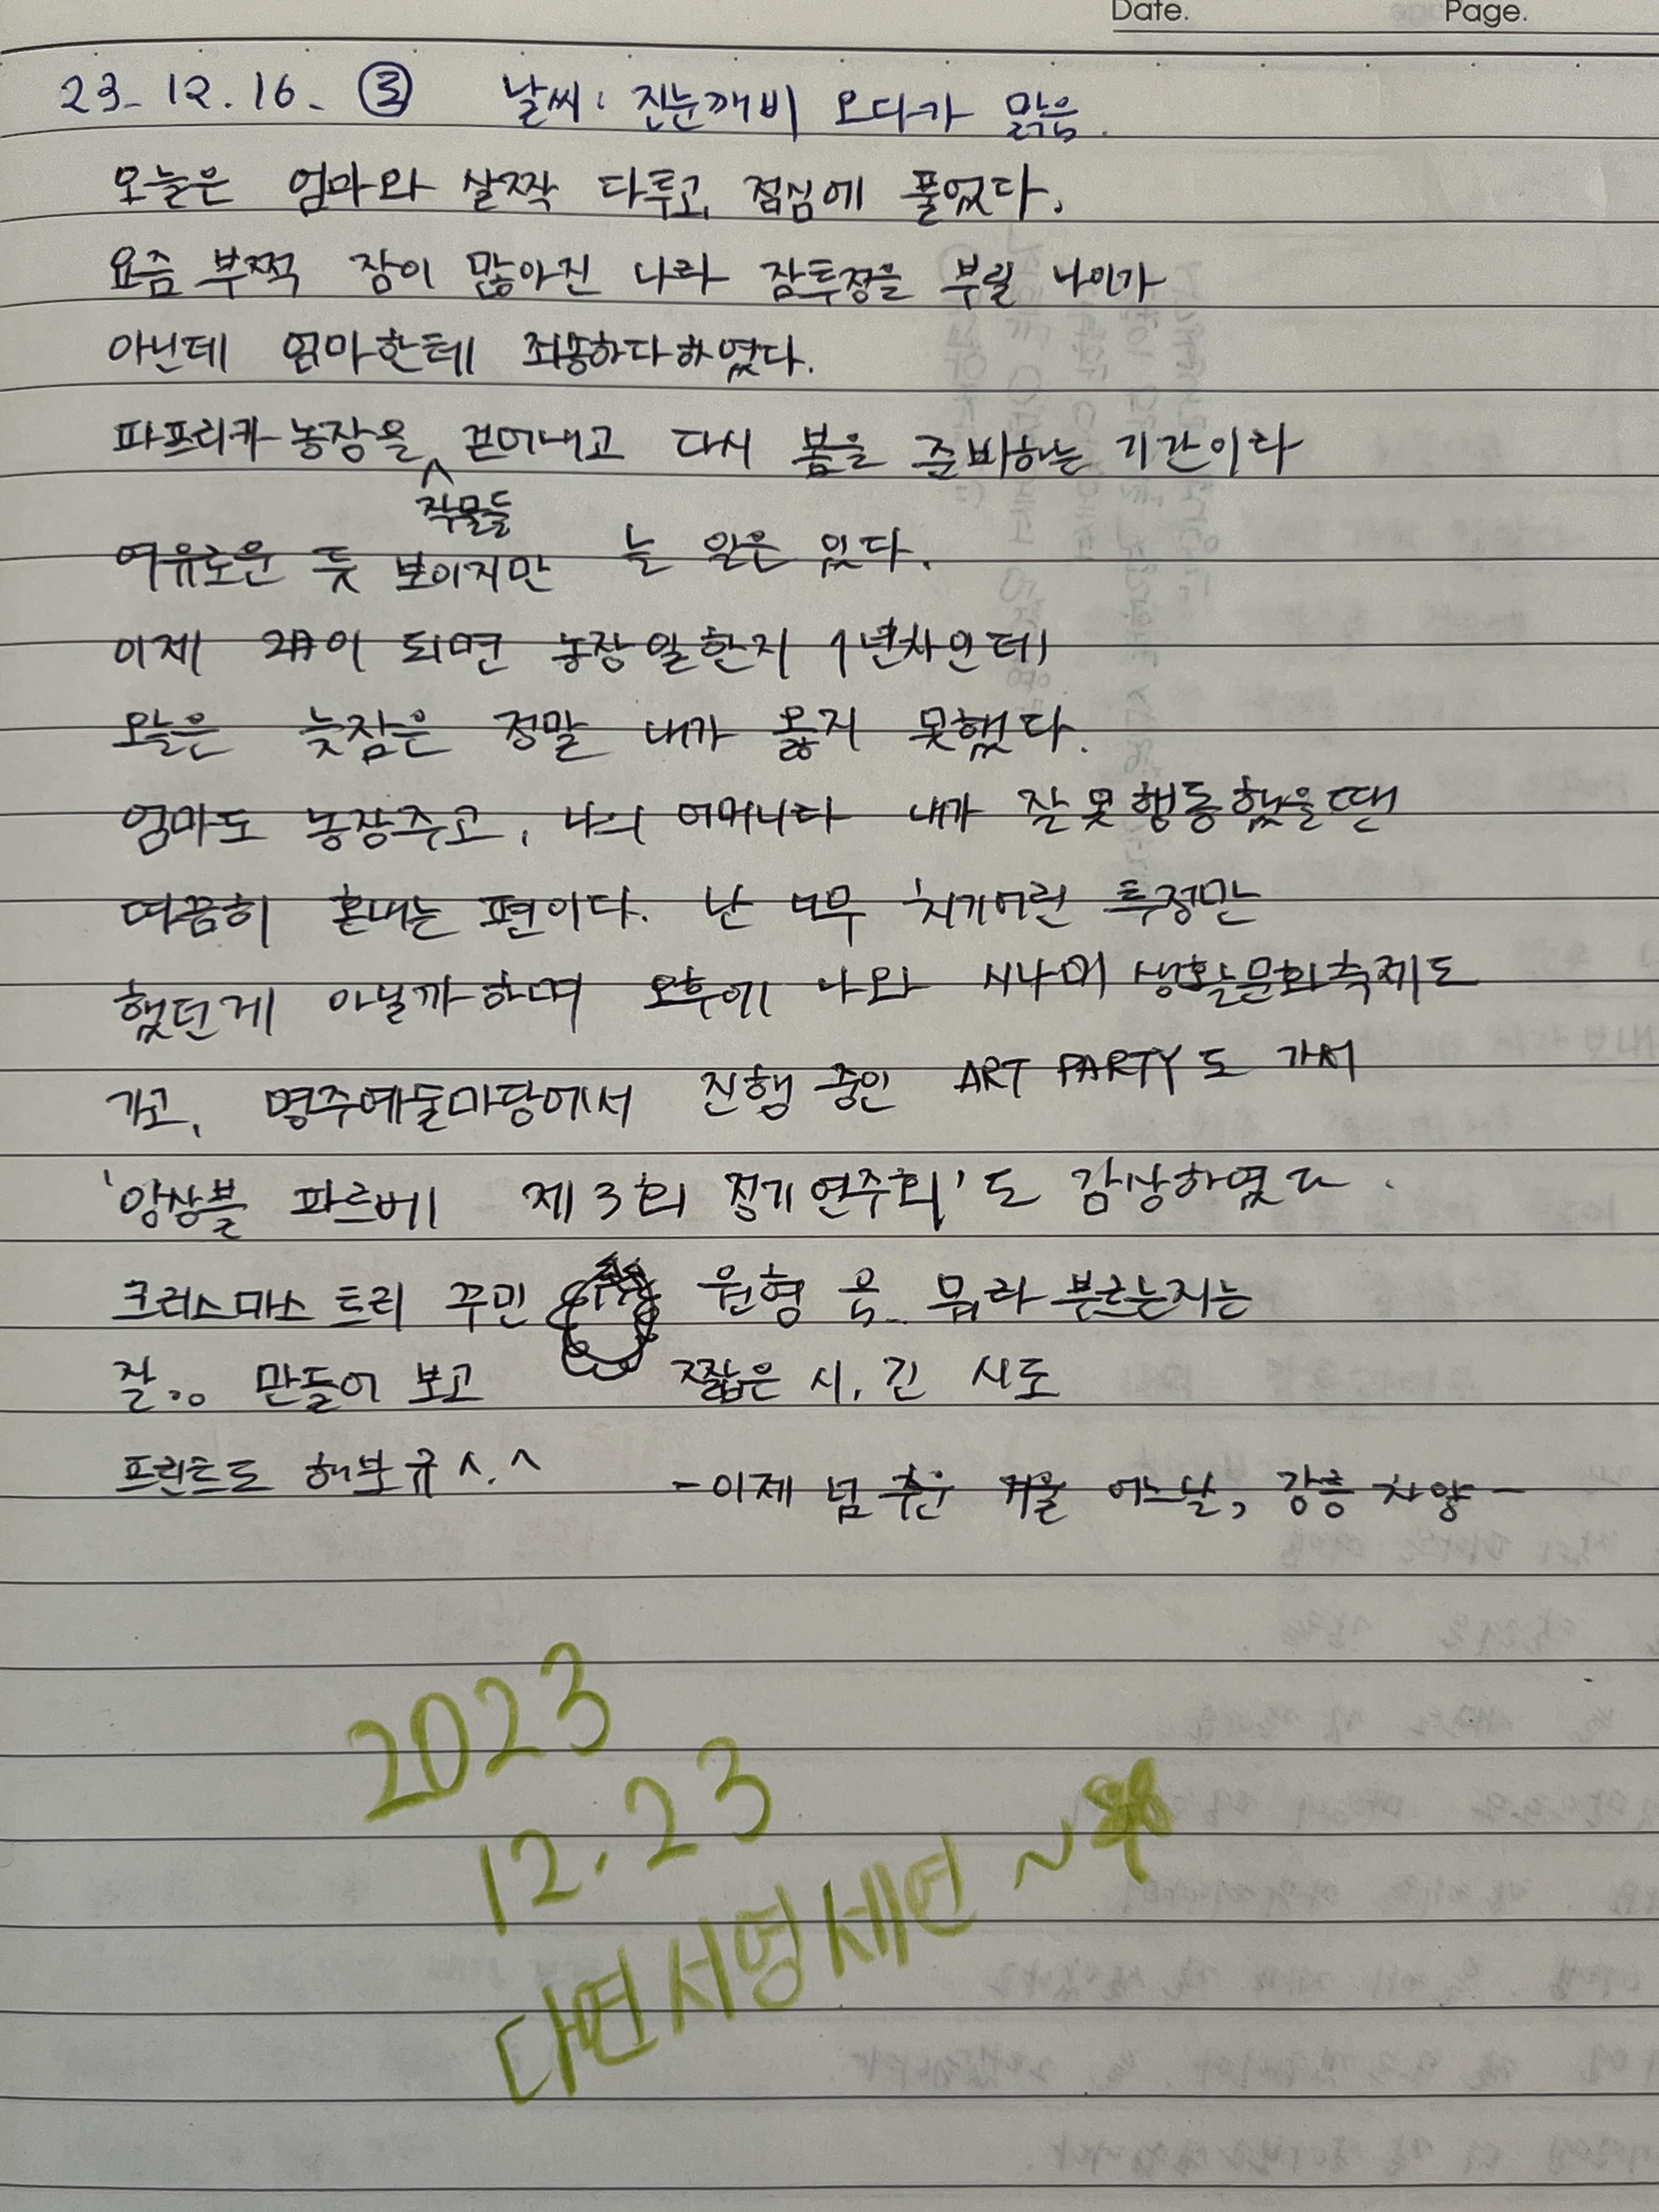 Date. Page.
23. 12. 16. 토 날씨: 진눈깨비 오다가 맑음.
오늘은 엄마와 살짝 다투고, 점심에 풀었다.
요즘 부쩍 잠이 많아진 나라 잠투정을 부릴 나이가
아닌데 엄마한테 죄송하다하였다.
파프리카 농장을 걷어내고 다시 봄을 준비하는 기간이라
작물들
여유로운 듯 보이지만 늘 일은 있다.
이제 2月이 되면 농장일한지 1년차인데
오늘은 늦잠은 정말 내가 옳지 못했다.
엄마도 농장주고, 나의 어머니다 내가 잘못행동했을땐
따끔히 혼내는 편이다. 난 너무 치기어린 투정만
했던게 아닐까하며 오후에 나와 시나미 생활문화축제도
가고, 명주예술마당에서 진행 중인 ART PARTY도 가서
'앙상블 파르베 제3회 정기연주회'도 감상하였다.
크리스마스 트리 꾸민 원형 뭐라 부르는지는
잘.. 만들어 보고 짧은 시, 긴 시도
프린트도 해보규^.^ -이제 넘 추운 겨울 어느날, 강릉 차양-
2023
12.23
다연서영세연~